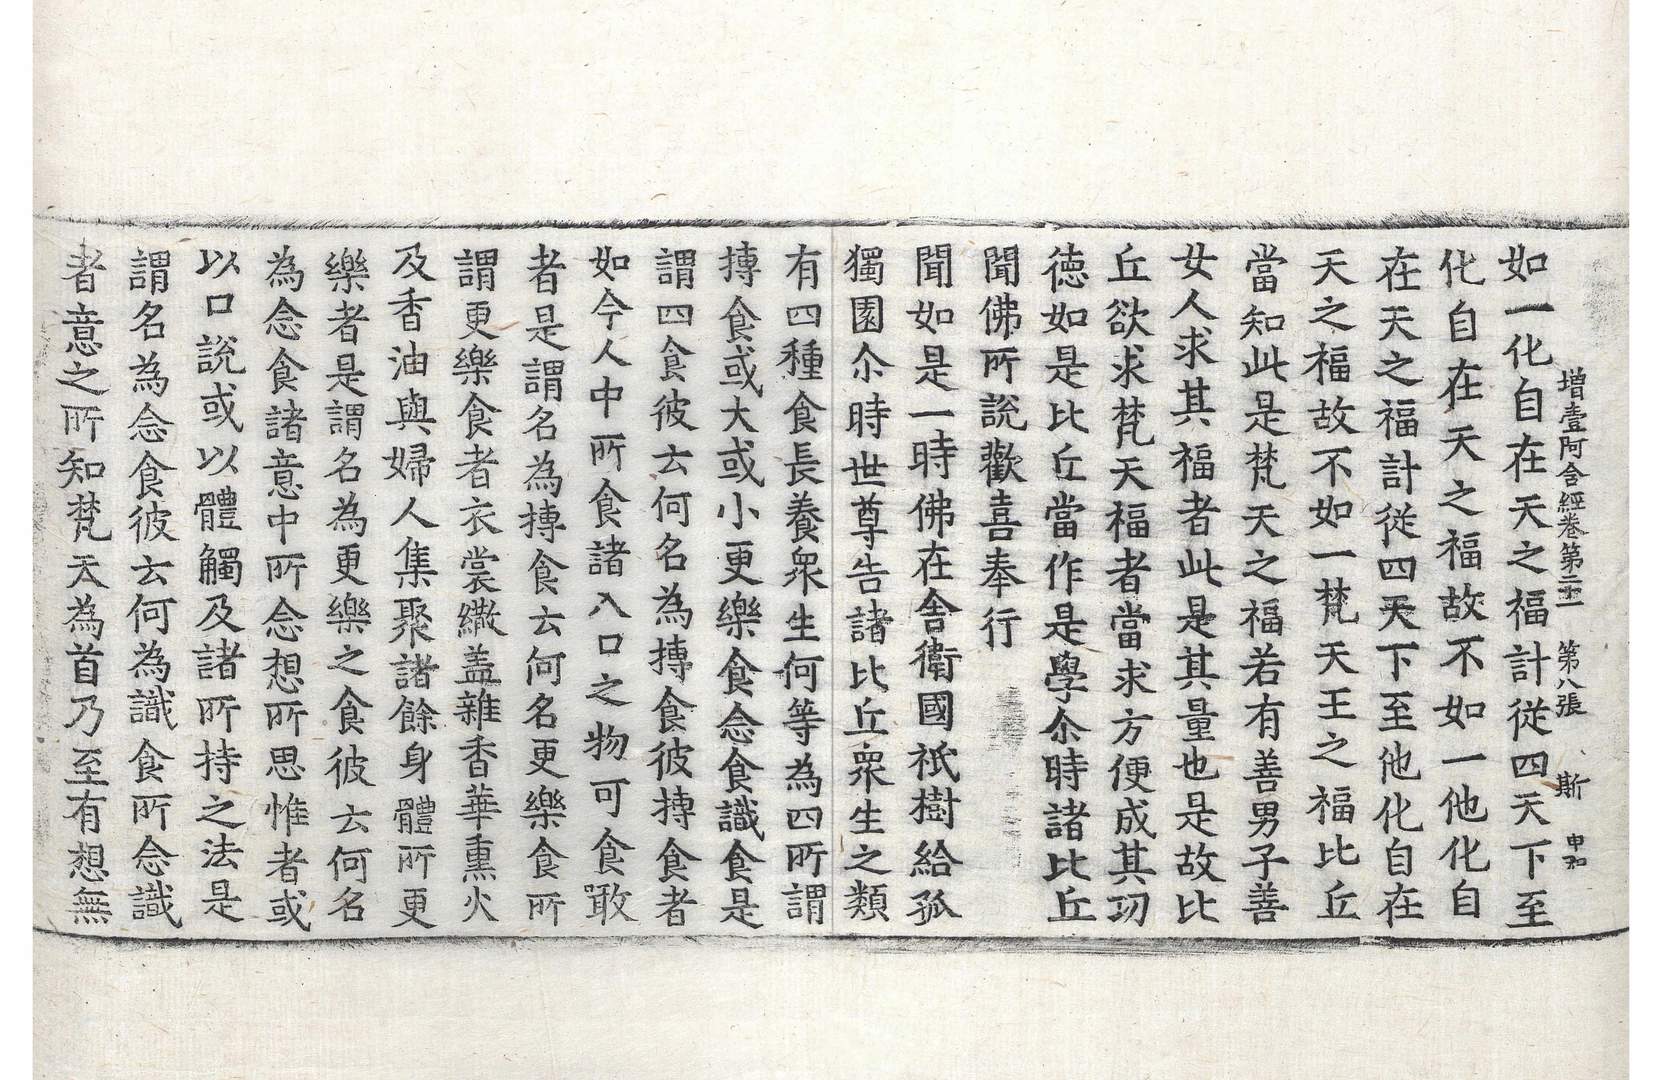 增壹阿含經卷第二十一　第八張　斯　申知
如一化自在天之福計從四天下至
化自在天之福故不如一他化自
在天之福計從四天下至他化自在
天之福故不如一梵天王之福比丘
當知此是梵天之福若有善男子善
女人求其福者此是其量也是故比
丘欲求梵天福者當求方便成其功
德如是比丘當作是學尒時諸比丘
聞佛所說歡喜奉行
聞如是一時佛在舍衛國祇樹給孤
獨園尒時世尊告諸比丘眾生之類
有四種食長養眾生何等為四所謂
摶食或大或小更樂食念食識食是
謂四食彼云何名為摶食彼摶食者
如今人中所食諸入口之物可食噉
者是謂名為摶食云何名更樂食所
謂更樂食者衣裳繖盖雜香華熏火
及香油與婦人集聚諸餘身體所更
樂者是謂名為更樂之食彼云何名
為念食諸意中所念想所思惟者或
以口說或以體觸及諸所持之法是
謂名為念食彼云何為識食所念識
者意之所知梵天為首乃至有想無